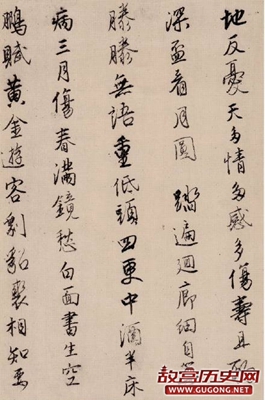 地反憂天多情多感多傷壽且酌
深盃看月圓 踏遍迴廊細自
滕滕無語重低頭四更中酒半床
病三月傷春滿鏡愁白面書生空
鵬賦黃金遊客剩貂裘相知
故宫历史网
www.GUGONG.net